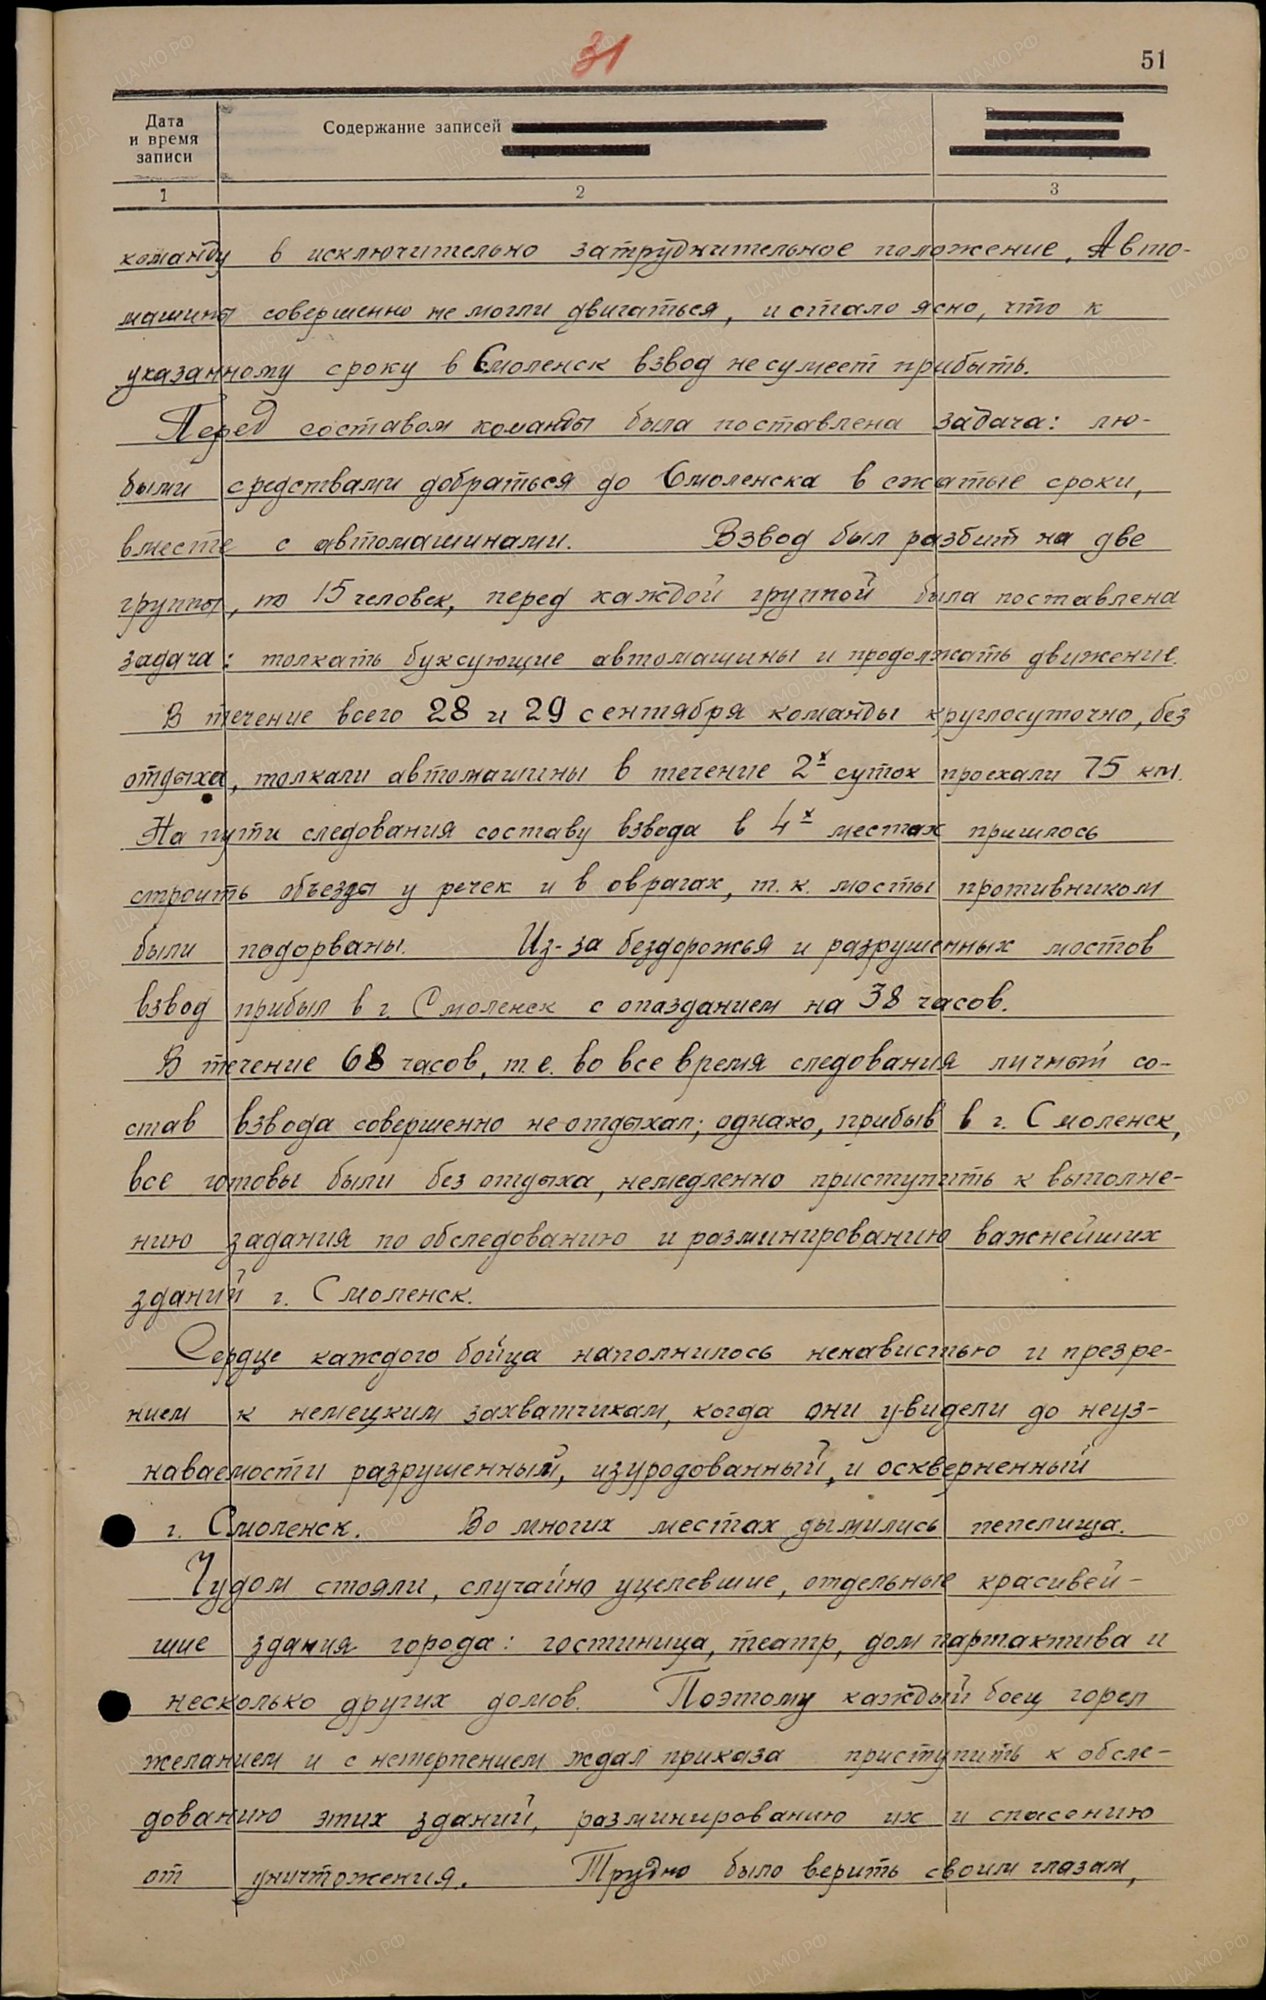 31
51
Дата
и время
записи
Содержание записей
1
2
3
команду в исключительно затруднительное положение. Авто-
машины совершенно не могли двигаться, и стало ясно, что к
указанному сроку в Смоленск взвод не сумеет прибыть.
Перед составом команды была поставлена задача: лю-
быми средствами добраться до Смоленска в сжатые сроки,
вместе с автомашинами. Взвод был разбит на две
группы, по 15 человек, перед каждой группой была поставлена
задача: толкать буксующие автомашины и продолжать движение.
В течение всего 28 и 29 сентября команды круглосуточно, без
отдыха, толкали автомашины в течение 2х суток проехали 75 км.
На пути следования составу взвода в 4х местах пришлось
строить объезды у речек и в оврагах, т.к. мосты противником
были подорваны. Из-за бездорожья и разрушенных мостов
взвод прибыл в г. Смоленск с опазданием на 38 часов.
В течение 68 часов, т.е. во все время следования личный со-
став взвода совершенно не отдыхал; однако, прибыв в г. Смоленск,
все готовы были без отдыха, немедленно приступить к выполне-
нию задания по обследованию и разминированию важнейших
зданий г. Смоленск.
Сердце каждого бойца наполнилось ненавистью и презре-
нием к немецким захватчикам, когда они увидели до неуз-
наваемости разрушенный, изуродованный, и оскверненный
г. Смоленск. Во многих местах дымились пепелища.
Чудом стояли, случайно уцелевшие, отдельные красивей-
шие здания города: гостиница, театр, дом партактива и
несколько других домов. Поэтому каждый боец горел
желанием и с нетерпением ждал приказа приступить к обсле-
дованию этих зданий, разминированию их и спасению
от уничтожения. Трудно было верить своим глазам,